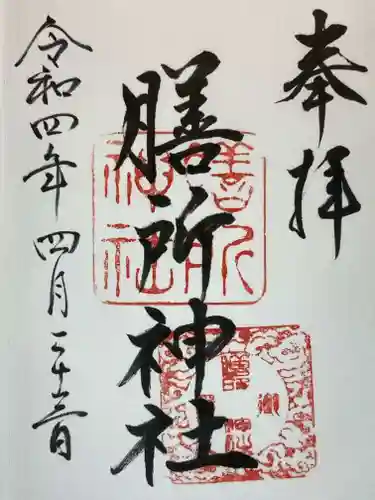 奉拝
膳所神社
令和四年四月二十三日